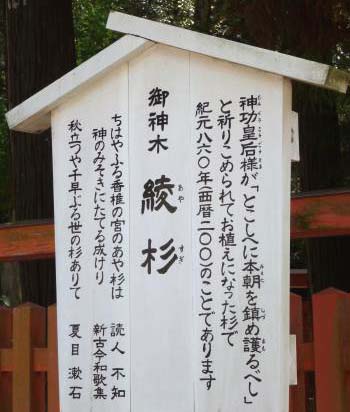 神功皇后様が「とこしへに本朝を鎮め護るべし」
と祈りこめられてお植えになった杉で
紀元八六〇年(西暦二〇〇)のことであります
御神木 綾杉
あや すぎ
ちはやふる香椎の宮のあや杉は
神のみそきにたてる成けり
読人 不知
新古今和歌集
秋立つや千早ぶる世の杉ありて
夏目 漱石